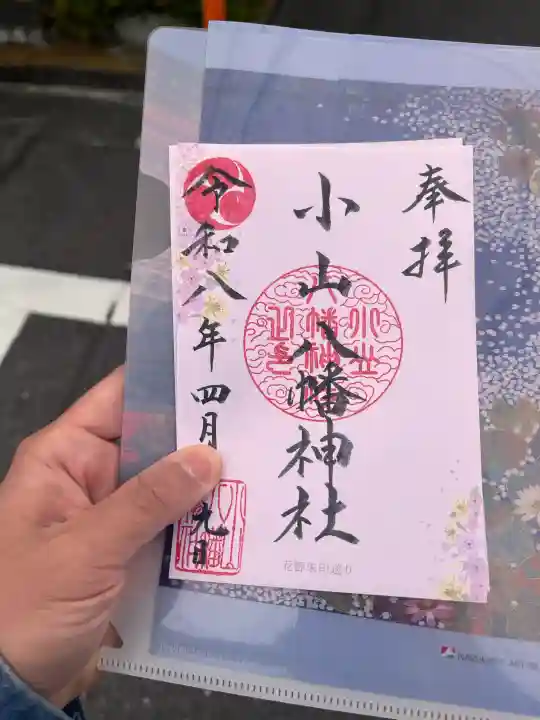 奉拝
小山八幡神社
令和八年四月九日
花御朱印巡り